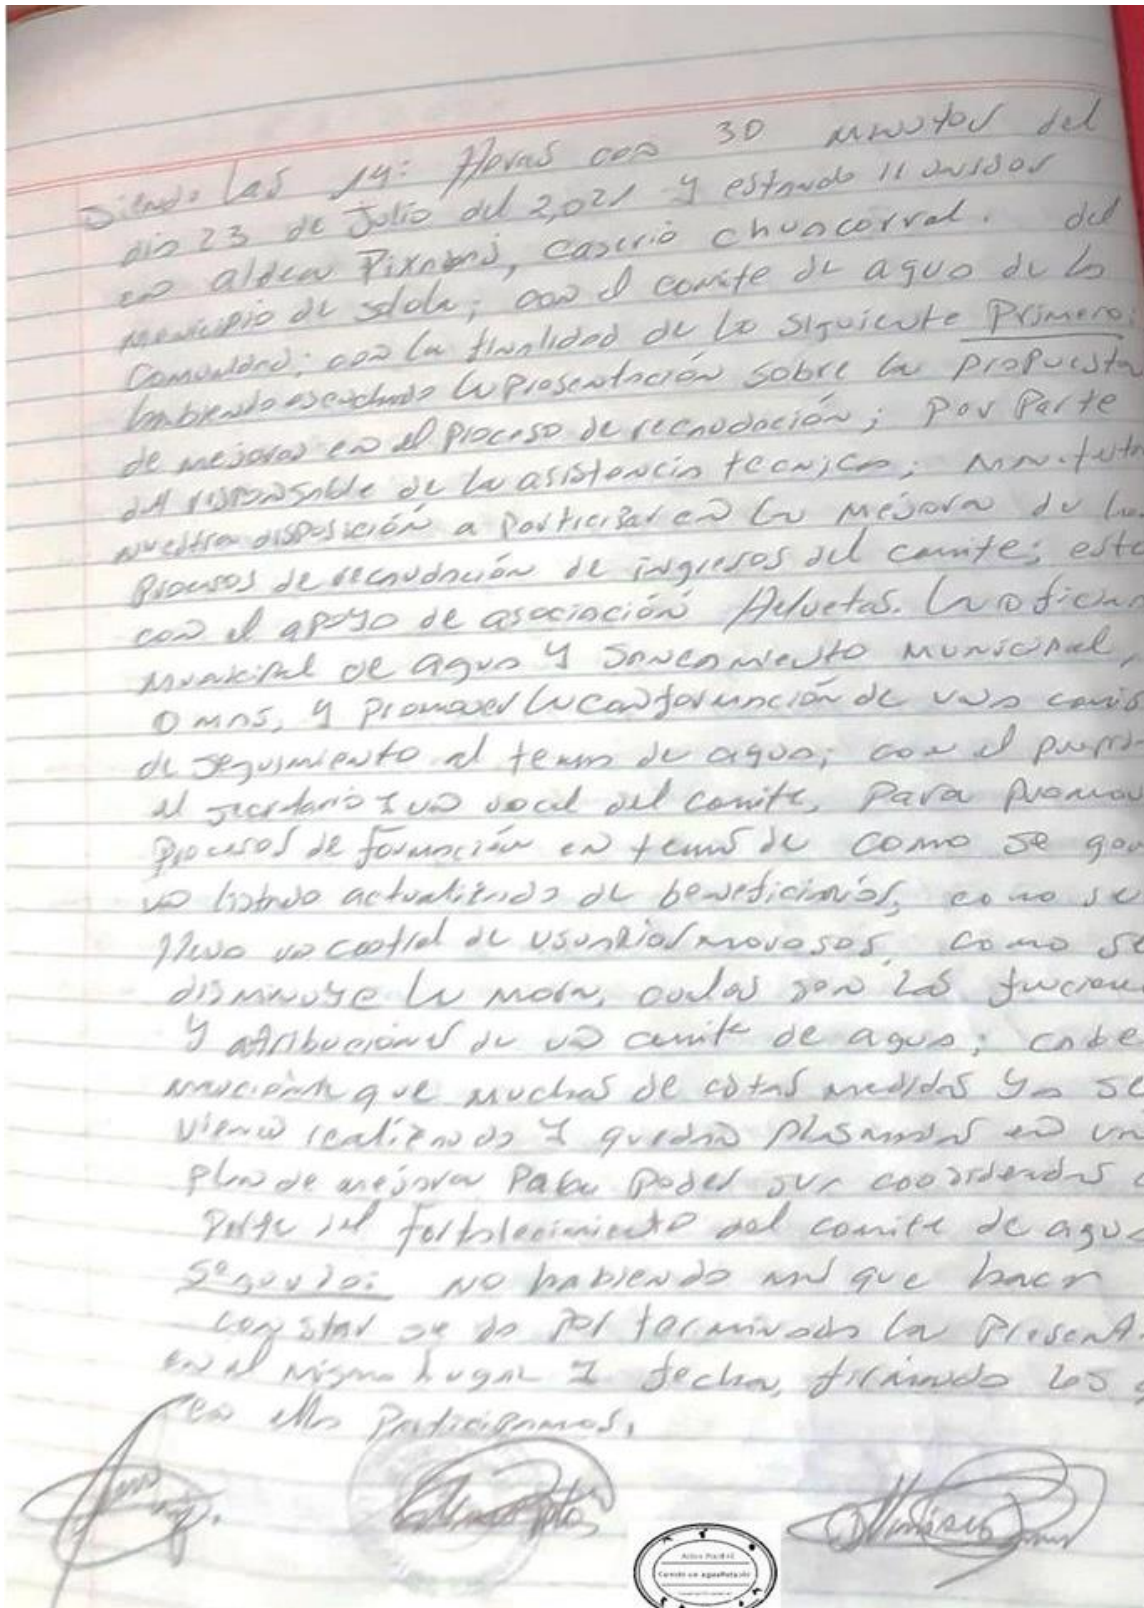 Siendo Las 14: Horas con 30 minutos del
dia 23 de Julio del 2,021 y estando reunidos
en aldea Pixabaj, Caserio chuacorral. del
municipio de solola; con el comite de agua de la
Comunidad; con la finalidad de lo siguiente Primero:
habiendo escuchado la presentación sobre la propuesta
de mejoras en el proceso de recaudación; por Parte
del responsable de la asistencia tecnica;
nuestra disposición a participar en la mejora de los
procesos de recaudación de ingresos del comite; esto
con el apoyo de asociación Helvetas. La oficina
municipal de agua y saneamiento municipal,
Omas, y promover la conformación de una
de seguimiento al tema de agua; con el
el secretario y un vocal del comite, Para
procesos de formación en temas de como se
un listado actualizado de beneficiarios, como se
lleva un control de usuarios morosos, como se
disminuye la mora, cuales son las
y atribuciones de un comite de agua; cabe
que muchas de estas medidas ya se
vienen realizando y quedan plasmadas en un
plan de mejoras Para poder ser
parte del fortalecimiento del comite de agua
Segundo: no habiendo mas que hacer
constar se da por terminada la
en el mismo lugar y fecha, firmando los
en ella Participamos.
Comité de agua